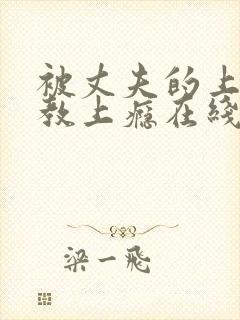 被丈夫的上
教上瘾在线
梁一飛